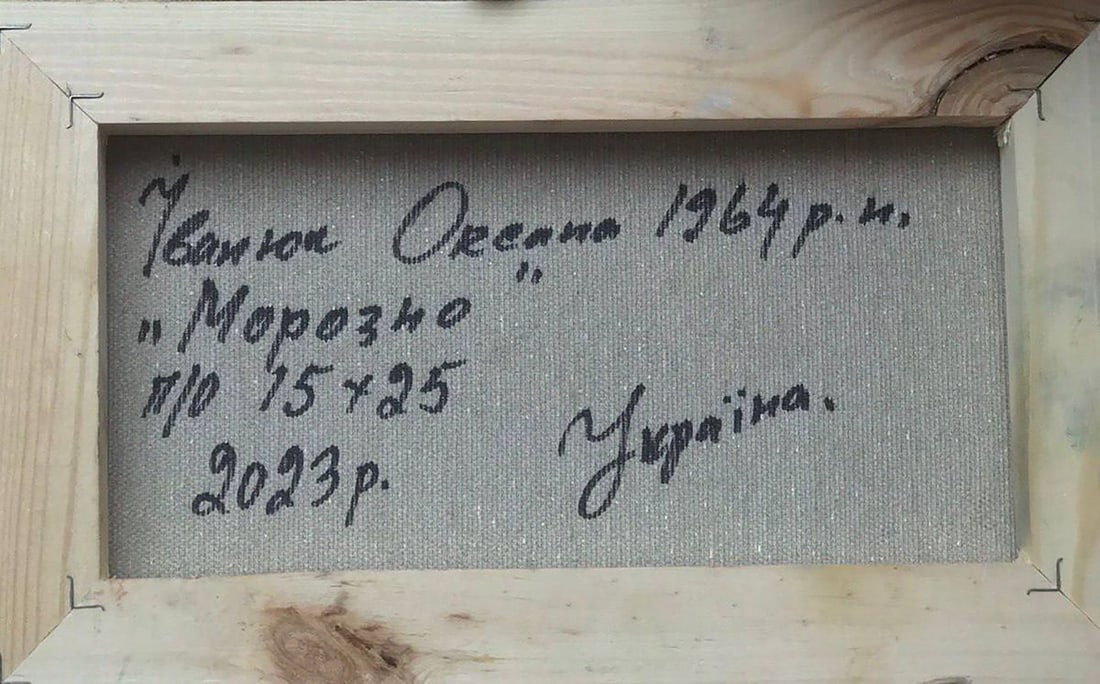 Іванюк Оксана 1964 р. н.
„Морозно"
п/о 15 х 25
2023 р.
Україна.